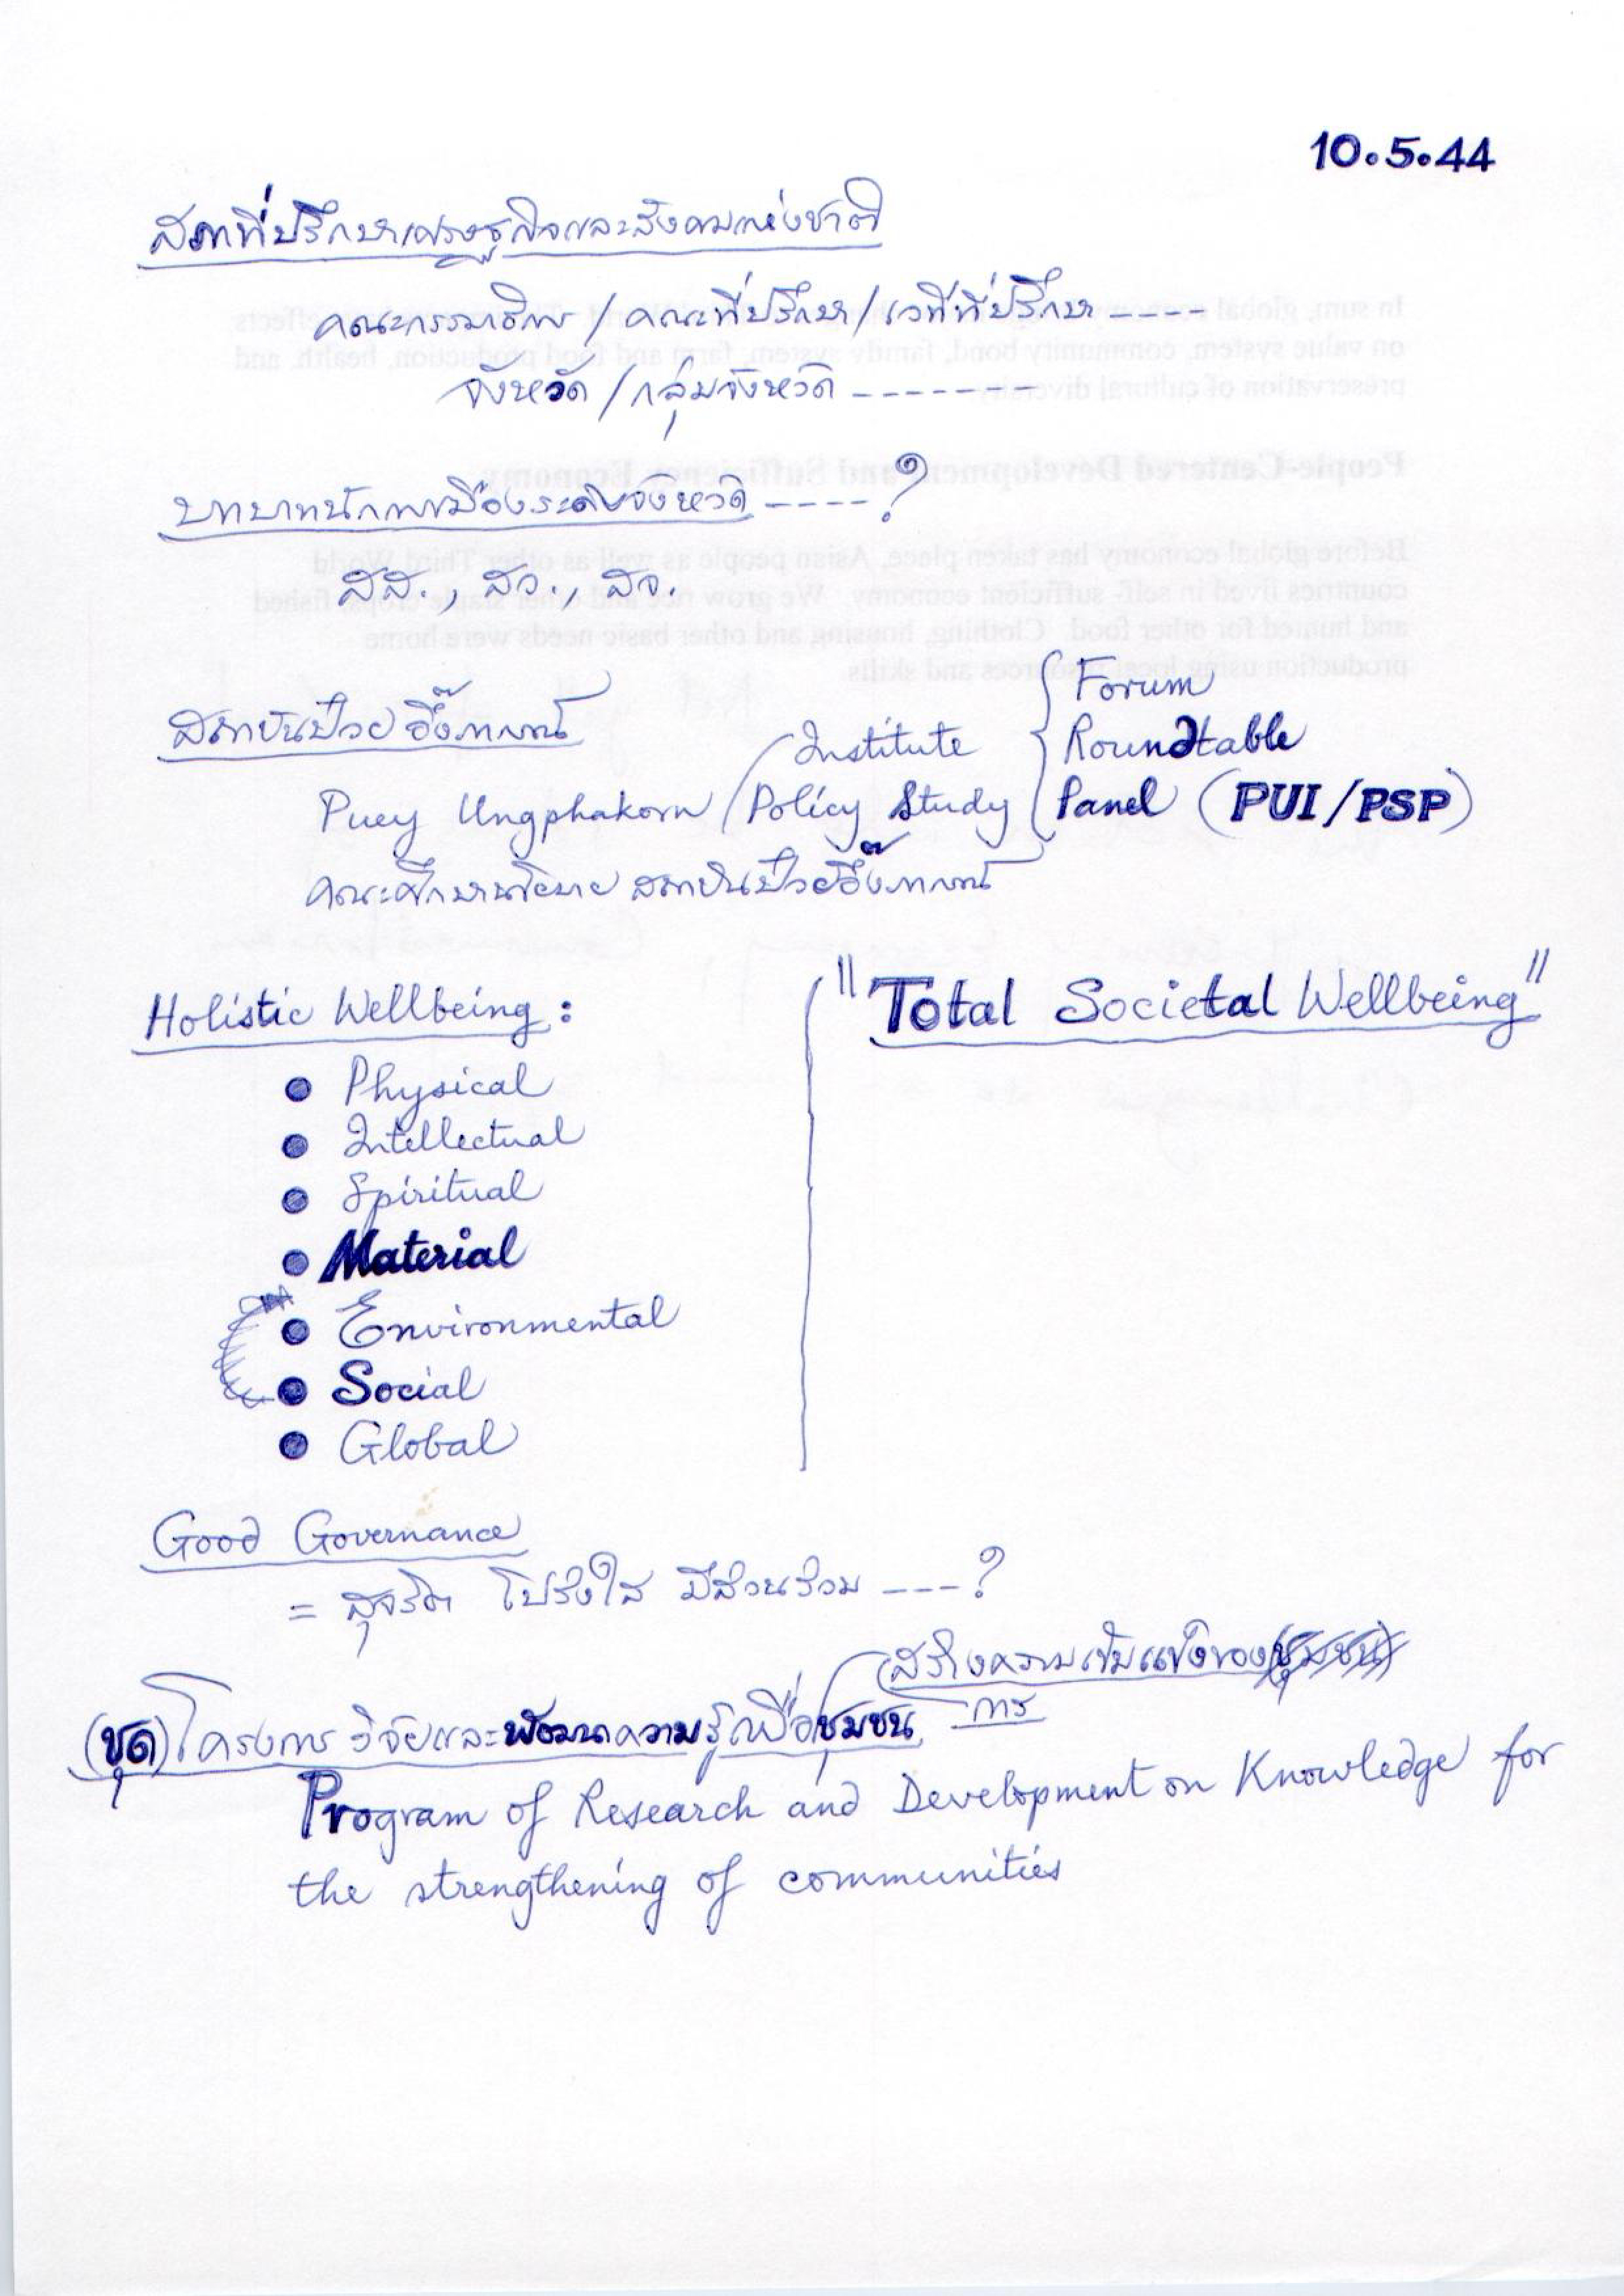 10.5.44
สภาที่ปรึกษาเศรษฐกิจและสังคมแห่งชาติ
คณะกรรมาธิการ / คณะที่ปรึกษา / เวทีที่ปรึกษา -----
จังหวัด / กลุ่มจังหวัด -------
บทบาทนักการเมืองระดับจังหวัด ----?
สส., สว., สจ.
สถาบันป๋วย อึ๊งภากรณ์
Puey Ungphakorn / Institute Policy Study { Forum
Roundtable
Panel (PUI/PSP)
คณะศึกษานโยบาย สถาบันป๋วยอึ๊งภากรณ์
Holistic Wellbeing :
"Total Societal Wellbeing"
• Physical
• Intellectual
• Spiritual
• Material
• Environmental
• Social
• Global
Good Governance
= สุจริต โปร่งใส มีส่วนร่วม ---?
(สร้างความเข้มแข็งของ(ชุมชน)
(ชุด) โครงการวิจัยและพัฒนาความรู้เพื่อชุมชน การ
Program of Research and Development on Knowledge for
the strengthening of communities